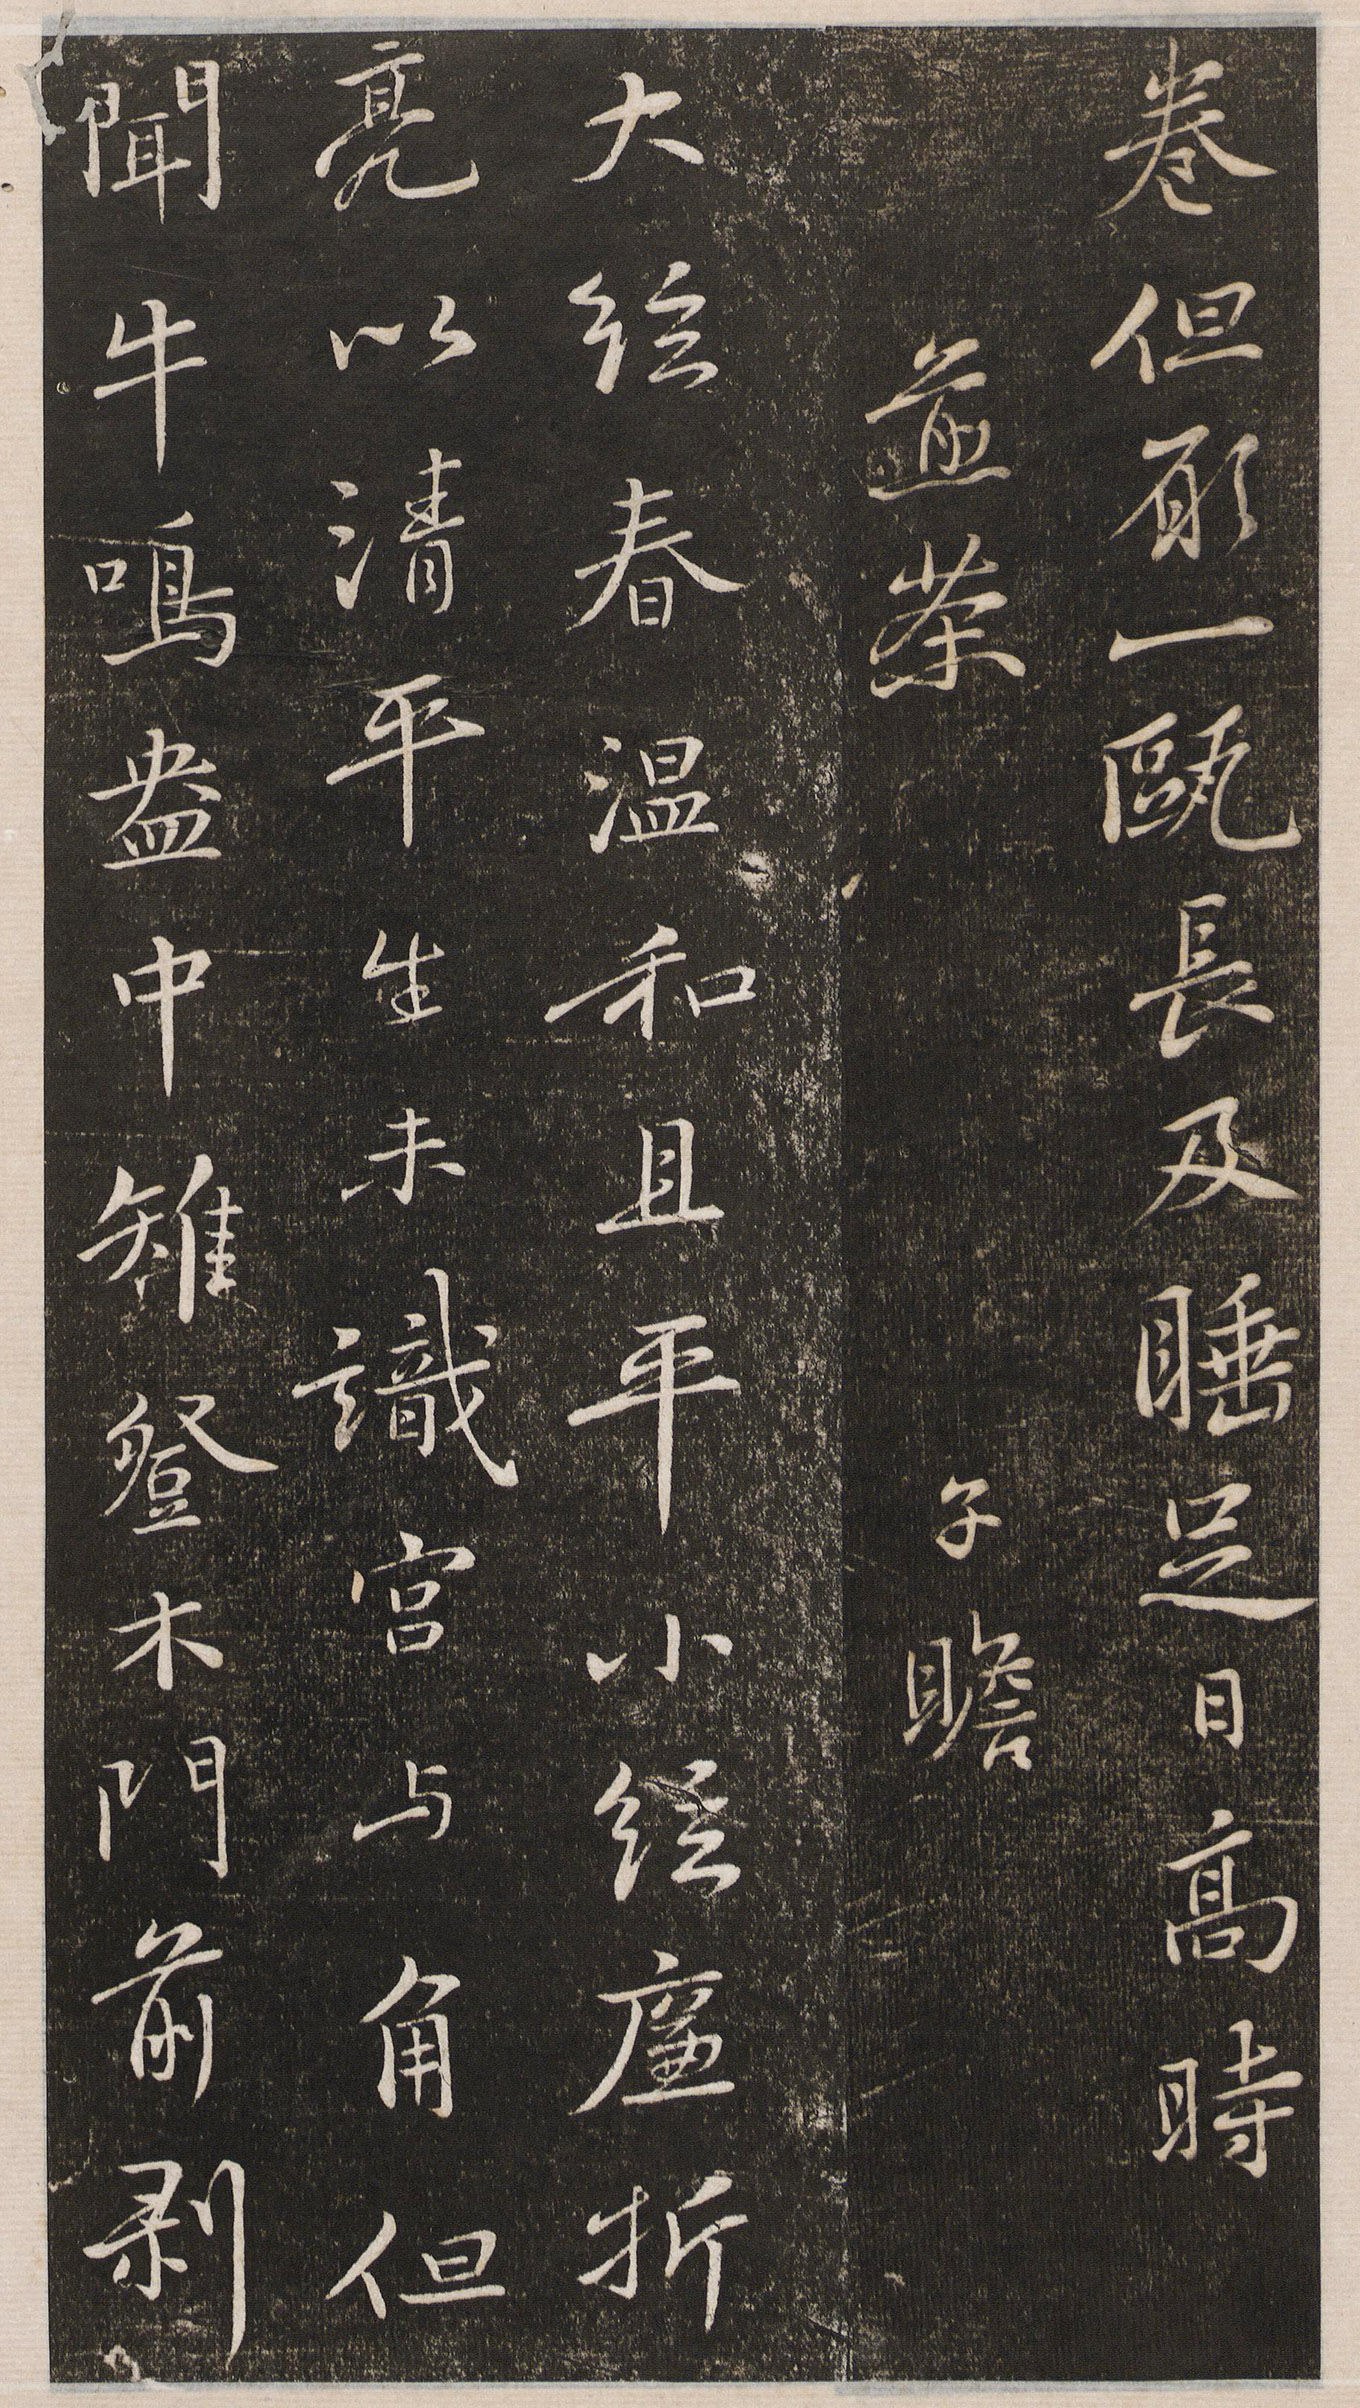 卷但願一甌長及睡足日高時
煎茶　子瞻
大絃春温和且平小絃廉折
亮以清平生未識宮与角但
聞牛鳴盎中雉登木門前剥